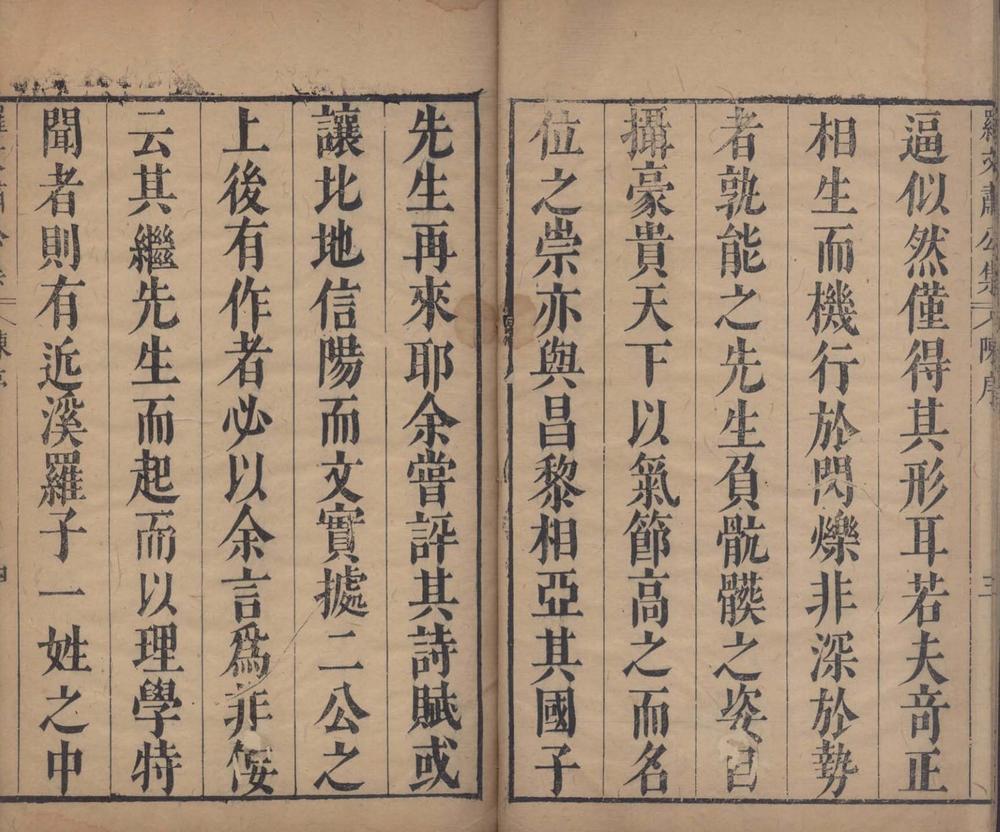 羅文肅公集 陳序
三
逼似然僅得其形耳若夫竒正
相生而機行於閃爍非深於勢
者孰能之先生負骯髒之姿目
攝豪貴天下以氣節高之而名
位之崇亦與昌黎相亞其國子
先生再來耶余嘗評其詩賦或
讓北地信陽而文實㩀二公之
上後有作者必以余言為非佞
云其繼先生而起而以理學特
聞者則有近溪羅子一姓之中